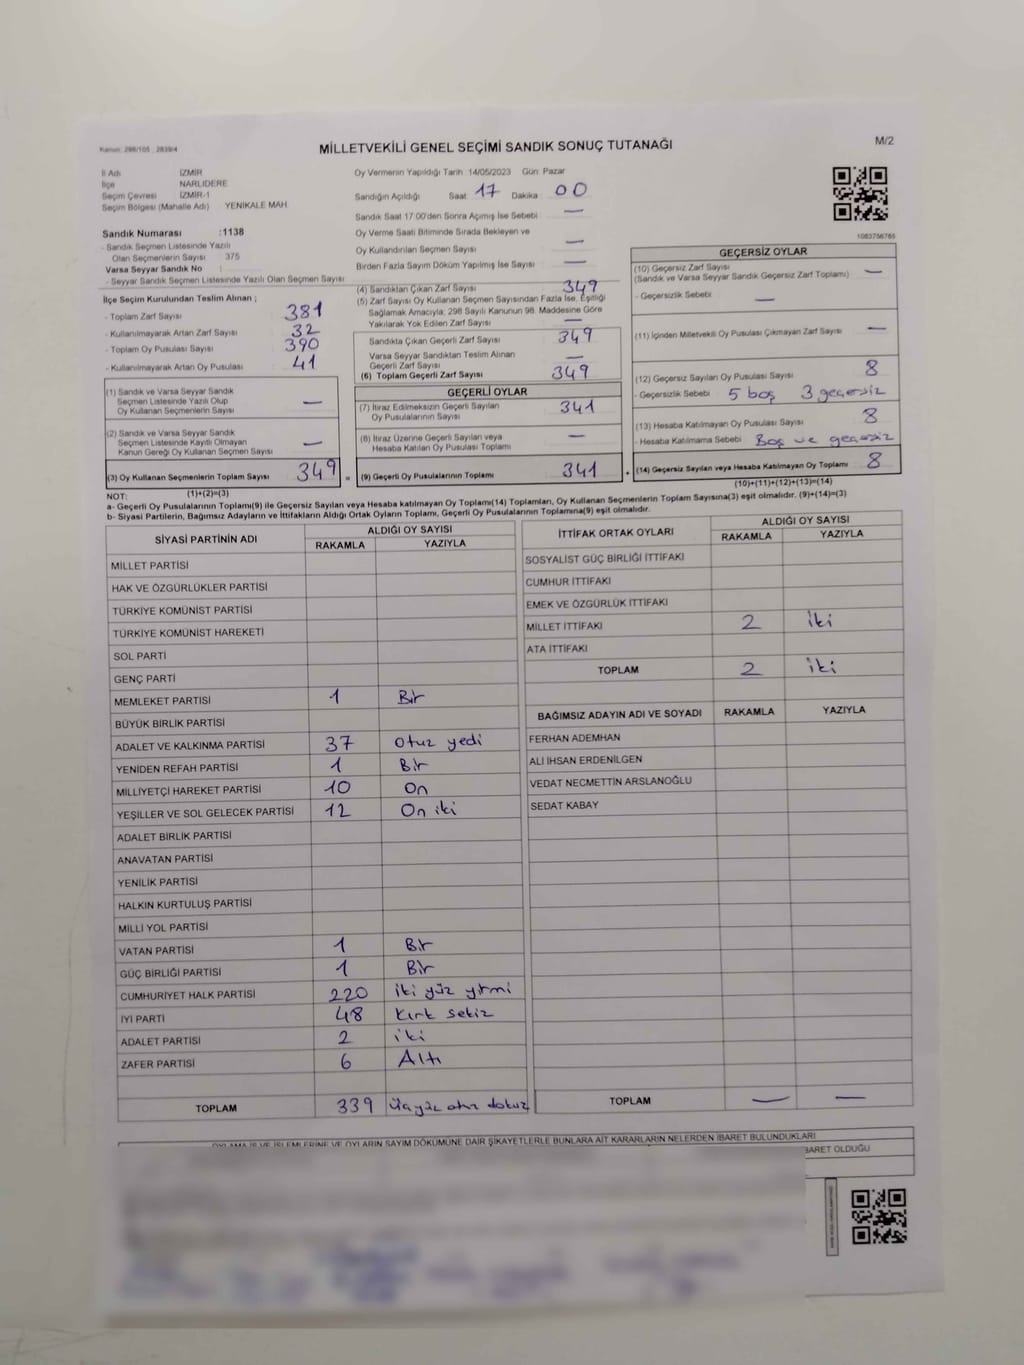 Kanun: 298/105 , 2839/4
MİLLETVEKİLİ GENEL SEÇİMİ SANDIK SONUÇ TUTANAĞI
M/2
İl Adı İZMİR
İlçe NARLIDERE
Seçim Çevresi İZMİR-1
Seçim Bölgesi (Mahalle Adı) YENİKALE MAH.
Sandık Numarası :1138
- Sandık Seçmen Listesinde Yazılı
Olan Seçmenlerin Sayısı 375
Varsa Seyyar Sandık No :
- Seyyar Sandık Seçmen Listesinde Yazılı Olan Seçmen Sayısı
İlçe Seçim Kurulundan Teslim Alınan ;
- Toplam Zarf Sayısı 381
- Kullanılmayarak Artan Zarf Sayısı 32
- Toplam Oy Pusulası Sayısı 390
- Kullanılmayarak Artan Oy Pusulası 41
(1) Sandık ve Varsa Seyyar Sandık
Seçmen Listesinde Yazılı Olup
Oy Kullanan Seçmenlerin Sayısı —
(2) Sandık ve Varsa Seyyar Sandık
Seçmen Listesinde Kayıtlı Olmayan
Kanun Gereği Oy Kullanan Seçmen Sayısı —
(3) Oy Kullanan Seçmenlerin Toplam Sayısı 349
(1)+(2)=(3)
Oy Vermenin Yapıldığı Tarih 14/05/2023 Gün: Pazar
Sandığın Açıldığı Saat 17 Dakika 00
Sandık Saat 17:00'den Sonra Açımış İse Sebebi —
Oy Verme Saati Bitiminde Sırada Bekleyen ve
Oy Kullandırılan Seçmen Sayısı —
Birden Fazla Sayım Döküm Yapılmış İse Sayısı —
(4) Sandıktan Çıkan Zarf Sayısı 349
(5) Zarf Sayısı Oy Kullanan Seçmen Sayısından Fazla İse, Eşitliği
Sağlamak Amacıyla; 298 Sayılı Kanunun 98. Maddesine Göre
Yakılarak Yok Edilen Zarf Sayısı —
Sandıkta Çıkan Geçerli Zarf Sayısı 349
Varsa Seyyar Sandıktan Teslim Alınan
Geçerli Zarf Sayısı —
(6) Toplam Geçerli Zarf Sayısı 349
GEÇERLİ OYLAR
(7) İtiraz Edilmeksizin Geçerli Sayılan
Oy Pusulalarının Sayısı 341
(8) İtiraz Üzerine Geçerli Sayılan veya
Hesaba Katılan Oy Pusulası Toplamı —
= (9) Geçerli Oy Pusulalarının Toplamı 341
1083756765
GEÇERSİZ OYLAR
(10) Geçersiz Zarf Sayısı
(Sandık ve Varsa Seyyar Sandık Geçersiz Zarf Toplamı) —
- Geçersizlik Sebebi —
(11) İçinden Milletvekili Oy Pusulası Çıkmayan Zarf Sayısı —
(12) Geçersiz Sayılan Oy Pusulası Sayısı 8
- Geçersizlik Sebebi 5 boş 3 geçersiz
(13) Hesaba Katılmayan Oy Pusulası Sayısı 8
- Hesaba Katılmama Sebebi Boş ve geçersiz
+ (14) Geçersiz Sayılan veya Hesaba Katılmayan Oy Toplamı 8
(10)+(11)+(12)+(13)=(14)
NOT:
a- Geçerli Oy Pusulalarının Toplamı(9) ile Geçersiz Sayılan veya Hesaba katılmayan Oy Toplamı(14) Toplamları, Oy Kullanan Seçmenlerin Toplam Sayısına(3) eşit olmalıdır. (9)+(14)=(3)
b- Siyasi Partilerin, Bağımsız Adayların ve İttifakların Aldığı Ortak Oyların Toplamı, Geçerli Oy Pusulalarının Toplamına(9) eşit olmalıdır.
SİYASİ PARTİNİN ADI ALDIĞI OY SAYISI
RAKAMLA YAZIYLA
MİLLET PARTİSİ
HAK VE ÖZGÜRLÜKLER PARTİSİ
TÜRKİYE KOMÜNİST PARTİSİ
TÜRKİYE KOMÜNİST HAREKETİ
SOL PARTİ
GENÇ PARTİ
MEMLEKET PARTİSİ 1 Bir
BÜYÜK BİRLİK PARTİSİ
ADALET VE KALKINMA PARTİSİ 37 Otuz yedi
YENİDEN REFAH PARTİSİ 1 Bir
MİLLİYETÇİ HAREKET PARTİSİ 10 On
YEŞİLLER VE SOL GELECEK PARTİSİ 12 On iki
ADALET BİRLİK PARTİSİ
ANAVATAN PARTİSİ
YENİLİK PARTİSİ
HALKIN KURTULUŞ PARTİSİ
MİLLİ YOL PARTİSİ
VATAN PARTİSİ 1 Bir
GÜÇ BİRLİĞİ PARTİSİ 1 Bir
CUMHURİYET HALK PARTİSİ 220 iki yüz yirmi
İYİ PARTİ 48 Kırk sekiz
ADALET PARTİSİ 2 iki
ZAFER PARTİSİ 6 Altı
TOPLAM 339 Üçyüz otuz dokuz
İTTİFAK ORTAK OYLARI ALDIĞI OY SAYISI
RAKAMLA YAZIYLA
SOSYALİST GÜÇ BİRLİĞİ İTTİFAKI
CUMHUR İTTİFAKI
EMEK VE ÖZGÜRLÜK İTTİFAKI
MİLLET İTTİFAKI 2 iki
ATA İTTİFAKI
TOPLAM 2 iki
BAĞIMSIZ ADAYIN ADI VE SOYADI RAKAMLA YAZIYLA
FERHAN ADEMHAN
ALİ İHSAN ERDENİLGEN
VEDAT NECMETTİN ARSLANOĞLU
SEDAT KABAY
TOPLAM — —
OYLAMA İŞ VE İŞLEMLERİNE VE OYLARIN SAYIM DÖKÜMÜNE DAİR ŞİKAYETLERLE BUNLARA AİT KARARLARIN NELERDEN İBARET BULUNDUKLARI
BARET OLDUĞU